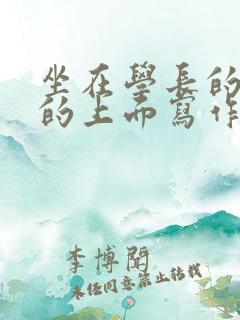 坐在學長的
的上面寫作
李博聞
未经同意禁止转载